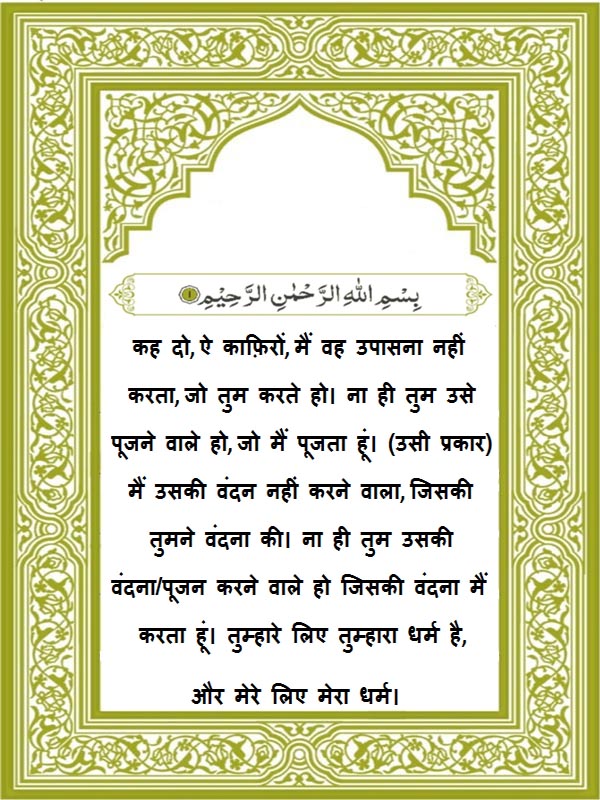 بِسْمِ اللهِ الرَّحْمٰنِ الرَّحِيْمِ ١
कह दो, ऐ काफ़िरों, मैं वह उपासना नहीं
करता, जो तुम करते हो। ना ही तुम उसे
पूजने वाले हो, जो मैं पूजता हूं। (उसी प्रकार)
मैं उसकी वंदन नहीं करने वाला, जिसकी
तुमने वंदना की। ना ही तुम उसकी
वंदना/पूजन करने वाले हो जिसकी वंदना मैं
करता हूं। तुम्हारे लिए तुम्हारा धर्म है,
और मेरे लिए मेरा धर्म।